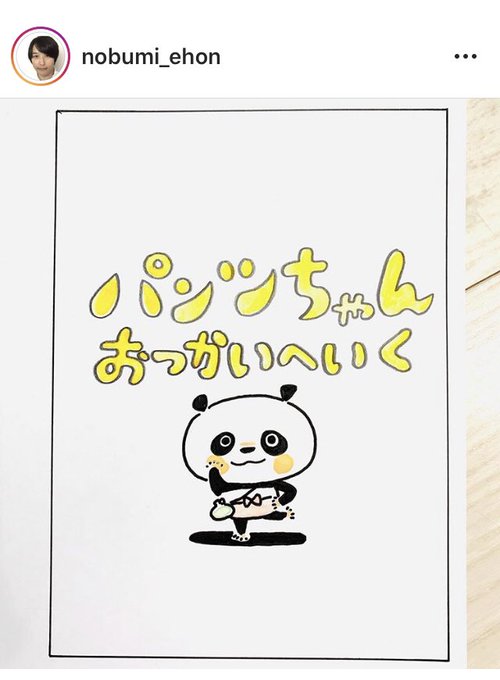 nobumi_ehon
パンツちゃん
おつかいへいく